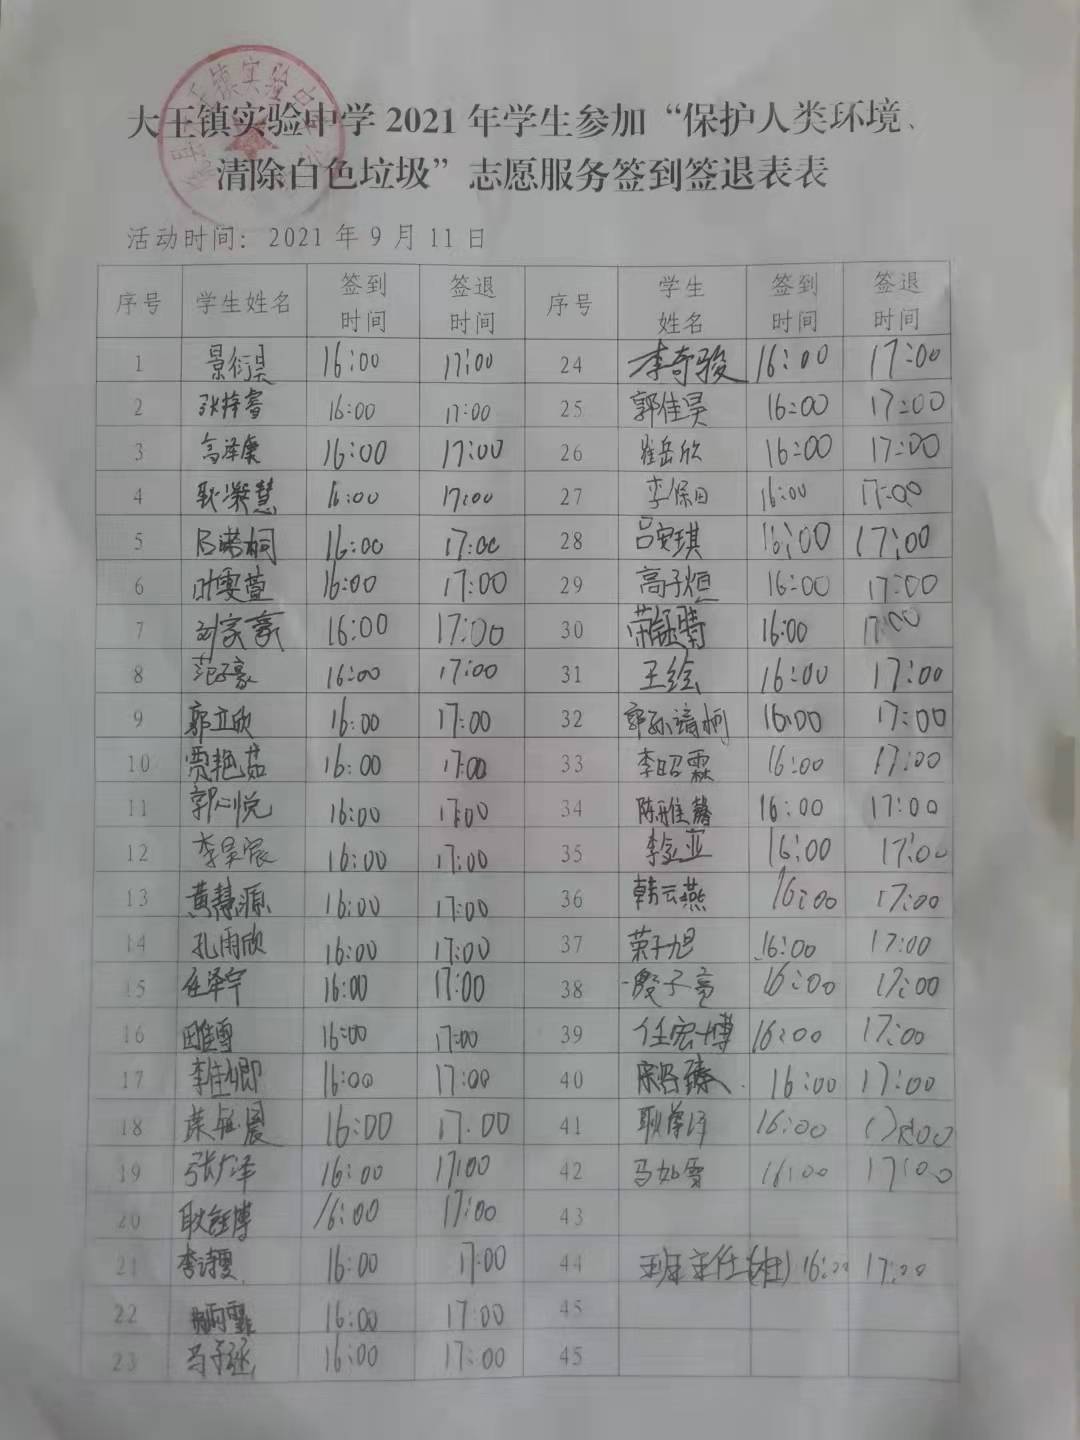 大王镇实验中学2021年学生参加“保护人类环境、
清除白色垃圾”志愿服务签到签退表表
活动时间：2021年9月11日
序号 学生姓名 签到时间 签退时间 序号 学生姓名 签到时间 签退时间
1 景衍昊 16:00 17:00 24 李奇骏 16:00 17:00
2 张梓睿 16:00 17:00 25 郭佳昊 16:00 17:00
3 高泽庚 16:00 17:00 26 崔岳欣 16:00 17:00
4 耿凝慧 16:00 17:00 27 李保田 16:00 17:00
5 吕诺桐 16:00 17:00 28 吕安琪 16:00 17:00
6 叶雯萱 16:00 17:00 29 高子烜 16:00 17:00
7 刘家豪 16:00 17:00 30 荣钰晴 16:00 17:00
8 范子豪 16:00 17:00 31 王绘 16:00 17:00
9 郭立欣 16:00 17:00 32 郭孙清柯 16:00 17:00
10 贾艳茹 16:00 17:00 33 李昭霖 16:00 17:00
11 郭心悦 16:00 17:00 34 陈雅馨 16:00 17:00
12 李昊宸 16:00 17:00 35 李金亚 16:00 17:00
13 黄慧源 16:00 17:00 36 韩云燕 16:00 17:00
14 孔雨欣 16:00 17:00 37 荣子旭 16:00 17:00
15 任泽宇 16:00 17:00 38 殷子亮 16:00 17:00
16 田雅雪 16:00 17:00 39 任宏博 16:00 17:00
17 李佳卿 16:00 17:00 40 16:00 17:00
18 16:00 17.00 41 16:00
19 张广泽 16:00 17:00 42 马如雪 16:00 17:00
20 耿钰博 16:00 17:00 43
21 李诗雯 16:00 17:00 44 班主任 16:00 17:00
22 16:00 17:00 45
23 马子涵 16:00 17:00 45